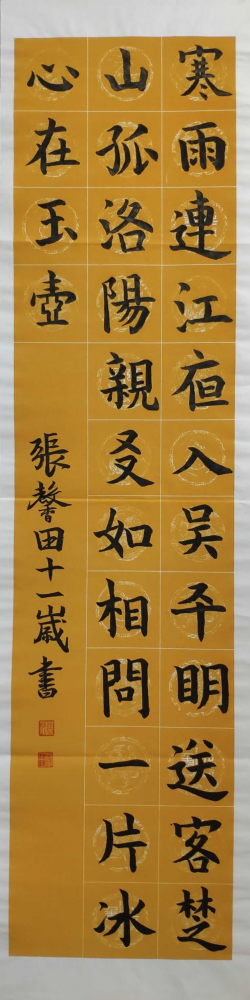 寒雨連江夜入吴平明送客楚
山孤洛陽親友如相問一片冰
心在玉壺
張馨田十一歲書